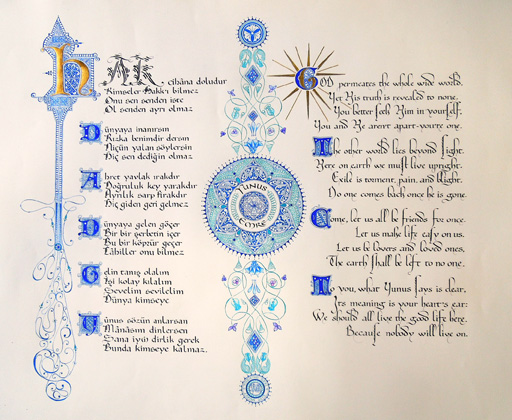 hAK, cihana doludur
Kimseler Hakkı bilmez
Onu sen senden iste
Ol senden ayrı olmaz
Dünyaya inanırsın
Rızka benimdir dersin
Niçin yalan söylersin
Hiç sen dediğin olmaz
Ahret yavlak ıraktır
Doğruluk key yarakdır
Ayrılık sarp firakdır
Hiç giden geri gelmez
Dünyaya gelen göçer
Bir bir şerbetin içer
Bu bir köprür geçer
Câhiller onu bilmez
Gelin tanış olalım
İşi kolay kılalım
Sevelim sevilelim
Dünya kimseye
Yûnus sözün anlarsan
Mânâsını dinlersen
Sana iyi dirlik gerek
Bunda kimseye kalmaz.
YUNUS
EMRE
GOD permeates the whole wide world,
Yet His truth is revealed to none.
You better seek Him in yourself,
You and He aren't apart-you're one.
The other world lies beyond sight.
Here on earth we must live upright.
Exile is torment, pain, and blight.
No one comes back once he is gone.
Come, let us all be friends for once,
Let us make life easy on us,
Let us be lovers and loved ones,
The earth shall be left to no one.
To you, what Yunus says is clear,
Its meaning is your heart's ear:
We should all live the good life here,
Because nobody will live on.